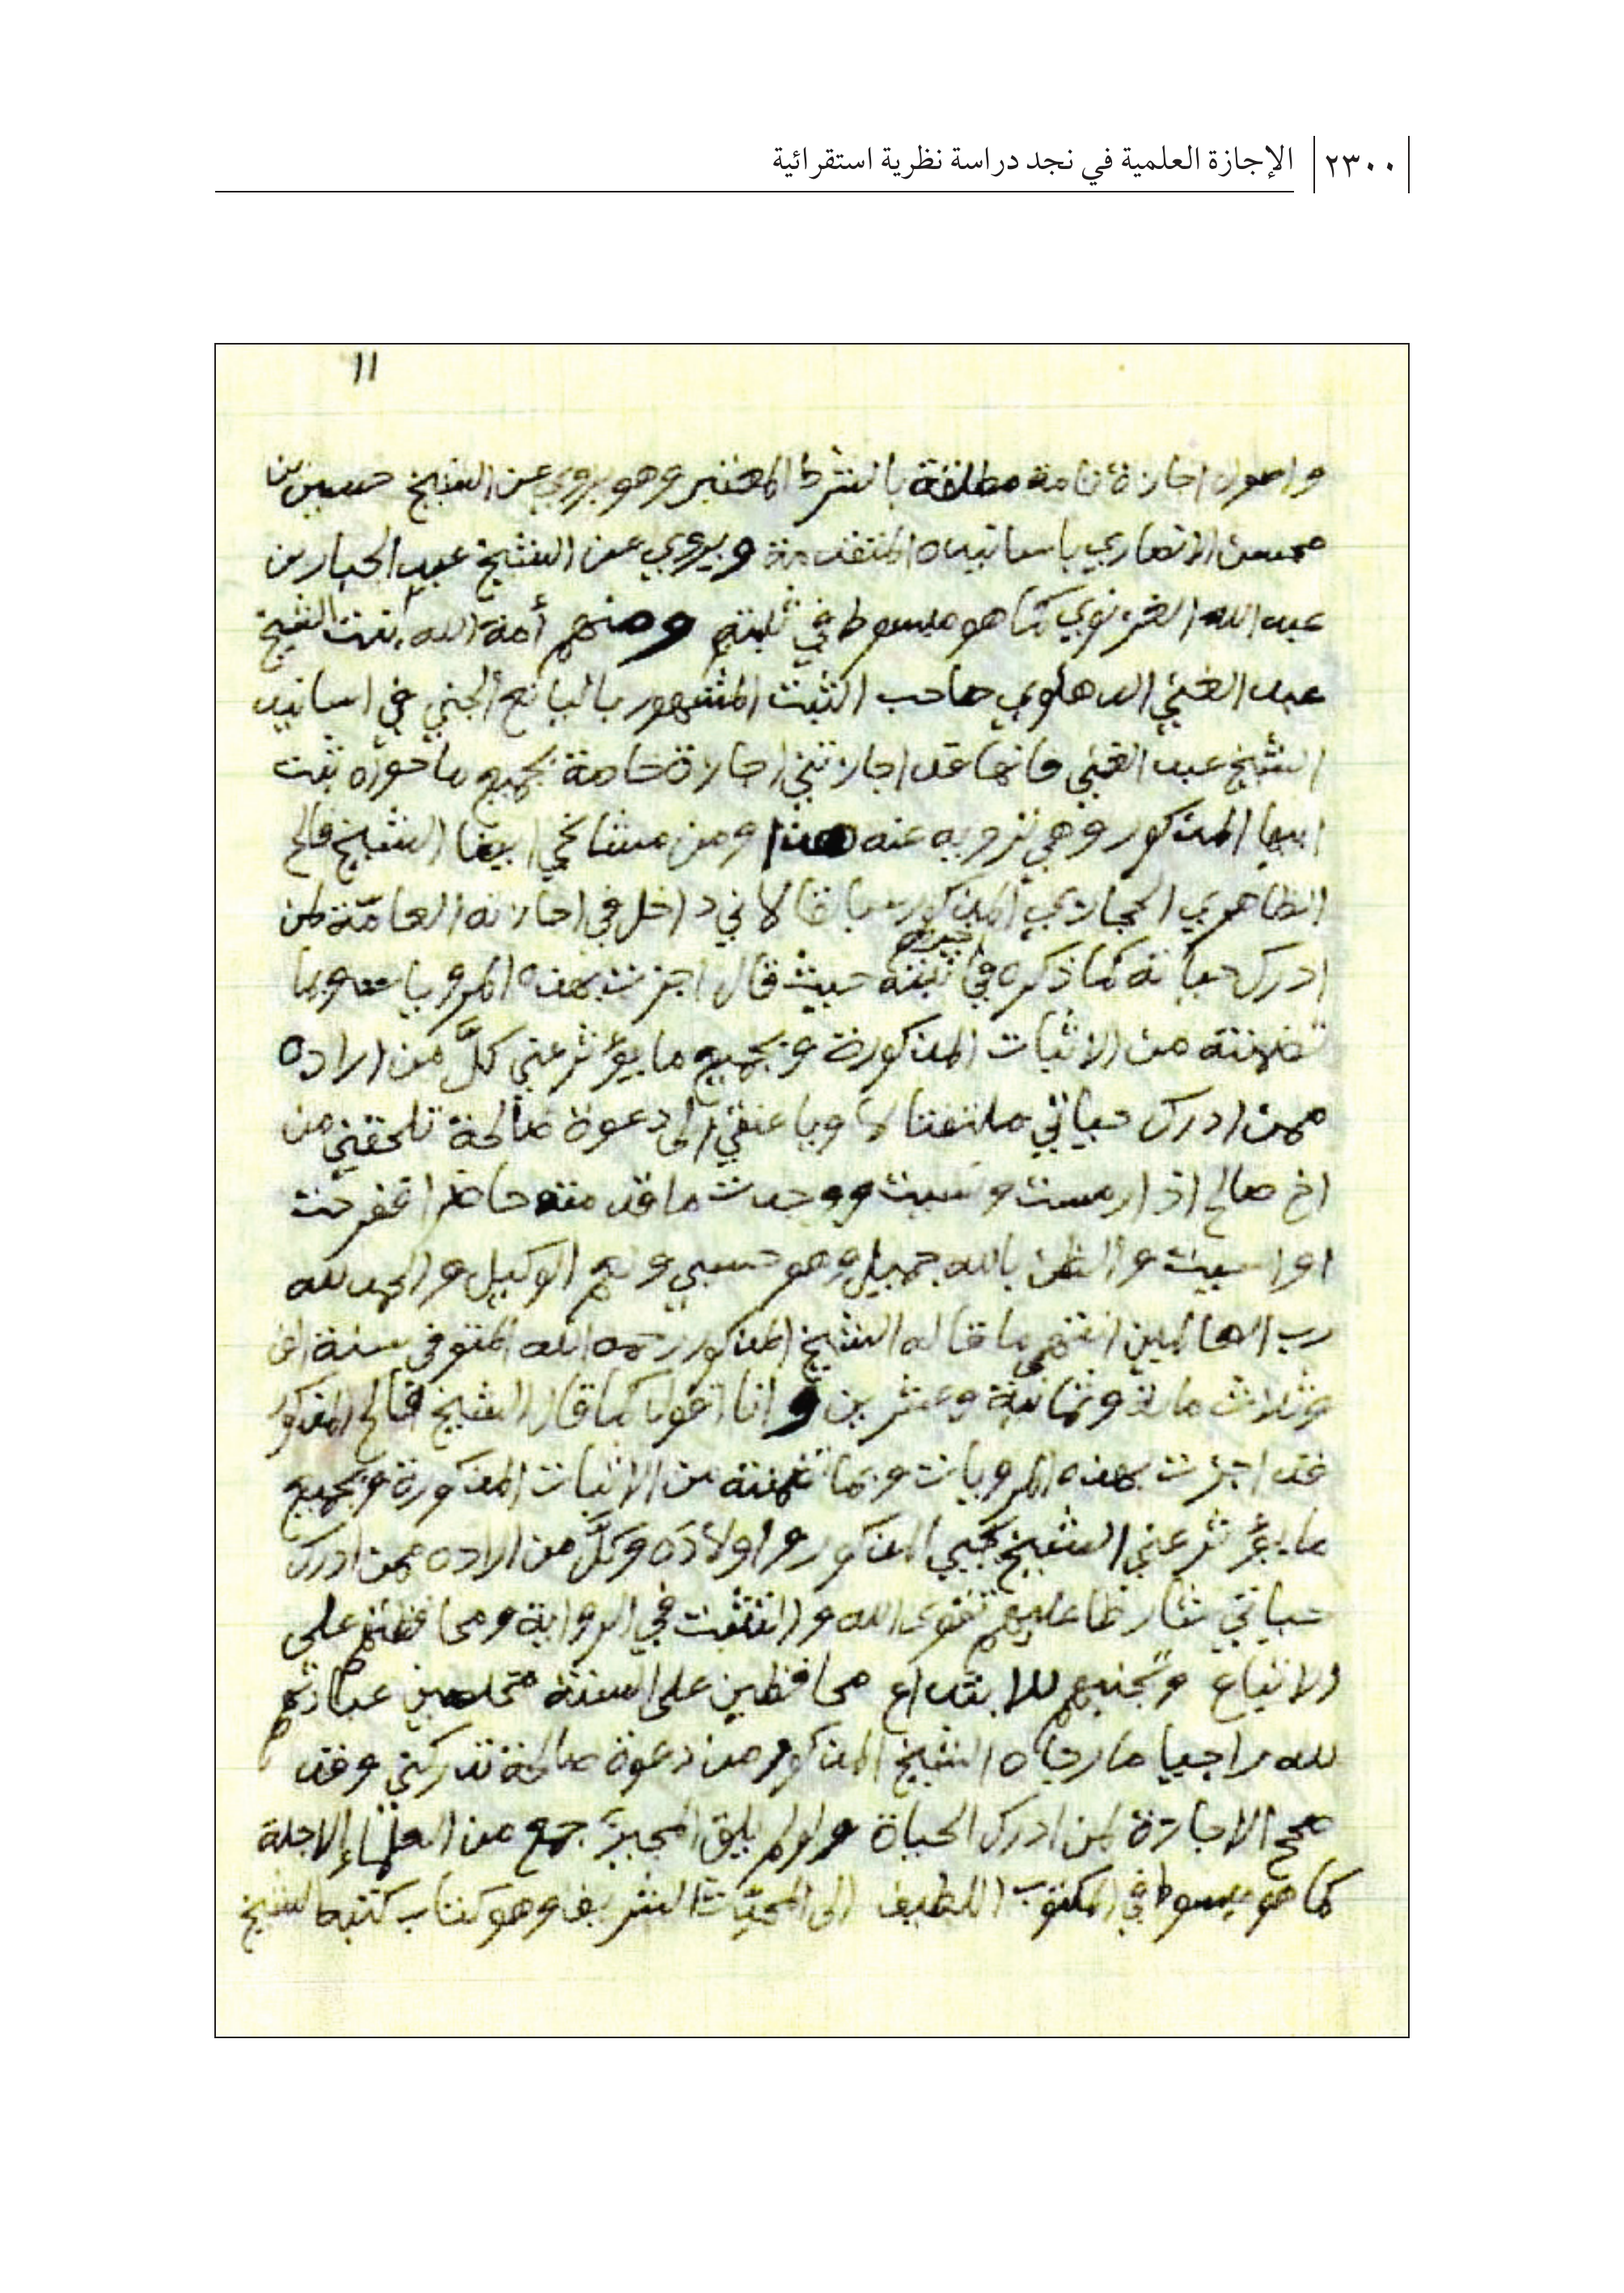 ٢٣٠٠ الإجازة العلمية في نجد دراسة نظرية استقرائية
١١
واصول اجازة تامة مطلقة بالشرط المعتبر وهو يروي عن الشيخ حسين بن
محسن الانصاري باسانيده المتقدمة ويروي عن الشيخ عبد الجبار بن
عبد الله الغزنوي كما هو مبسوط في ثبته ومنهم أمة الله بنت الشيخ
عبد الغني الدهلوي صاحب الثبت المشهور باليانع الجني في اسانيد
الشيخ عبد الغني فانها قد اجازتني اجازة خاصة بجميع ما حواه ثبت
ابيها المذكور وهي ترويه عنه هذا ومن مشائخي ايضا الشيخ فالح
الظاهري الحجازي المذكور سابقا لاني داخل في اجازته العامّة لمن
ادرك حياته كما ذكره في ثبته حيث قال اجزت بهذه المرويات وبما
تضمنته من الاثبات المذكورة وبجميع ما يؤثر عني كلَّ من اراده
ممن ادرك حياتي ملتفتا لها وباعنقي الى دعوة صالحة تلحقني من
اخ صالح اذا رمست ونسيت ووجدت ما قدمته حاضرا ففرحت
او اسيت والظن بالله جميل وهو حسبي ونعم الوكيل والحمد لله
رب العالمين انتهى ما قاله الشيخ المذكور رحمه الله المتوفى سنة الف
وثلاث مائة وثمانية وعشرين وانا اقول كما قال الشيخ فالح المذكور
قد اجزت بهذه المرويات وبما تضمنته من الاثبات المذكورة وبجميع
ما يؤثر عني الشيخ المذكور واولاده وكلَّ من اراده ممن ادرك
حياتي شارطا عليهم تقوى الله والتثبت في الرواية ومحافظتهم على
الاتباع وتجنبهم للابتداع محافظين على السنة مخلصين عبادتهم
لله راجيا ما رجاه الشيخ المذكور من دعوة صالحة تدركني وقد
صحح الاجازة لمن ادرك الحياة ولو لم يلق المجيزَ جمع من العلماء الاجلة
كما هو مبسوط في المكتوب اللطيف الى المحدّث الشريف وهو كتاب كتبه الشيخ